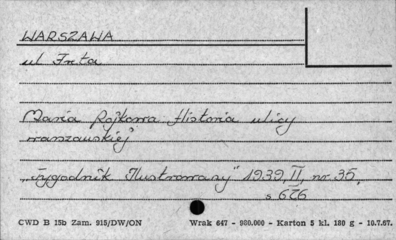 WARSZAWA
ul Freta
Maria Rojkowa Historia ulicy
warszawskiej
"Tygodnik Ilustrowany" 1939, II, nr 35,
s 676
CWD B 15b Zam. 915/DW/ON Wrak 647 - 900.000 - Karton 5 kl. 180 g - 10.7.67.